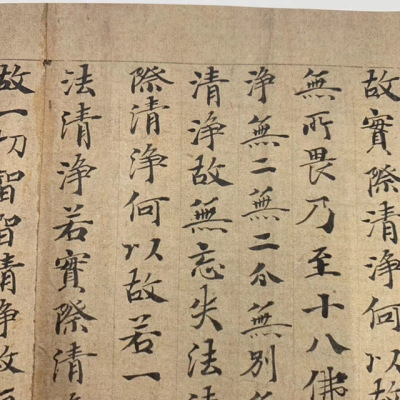 故實際清淨何以故
無所畏乃至十八佛
淨無二無二分無別
清淨故無忘失法清
際清淨何以故若一
法清淨若實際清
故一切智智清淨故